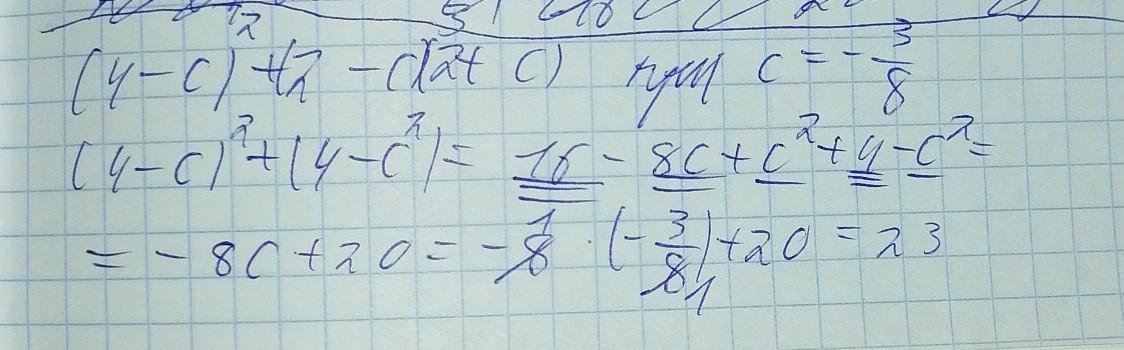 (4-c)²+(2-c)(2+c) при c=-3/8
(4-c)²+(4-c²)=16-8c+c²+4-c²=
=-8c+20=-8·(-3/8)+20=23